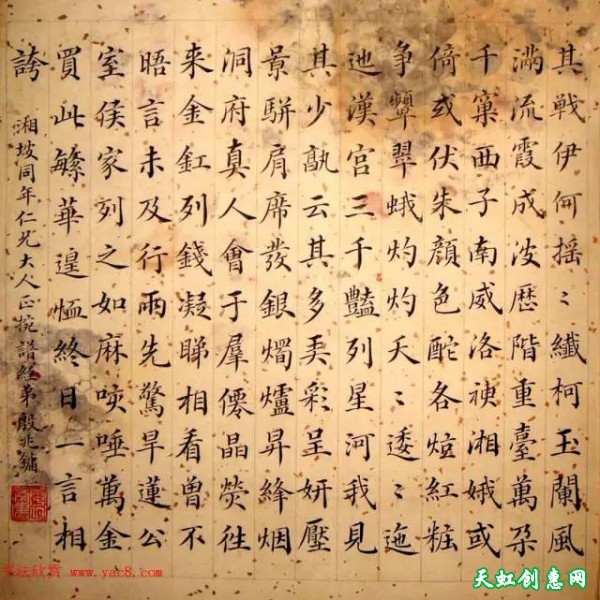 其戦伊何摇〻纖柯玉闌風
滿流霞成波歷階重臺萬朶
千窠西子南威洛神湘娥或
倚或伏朱顔色酡各炫紅粧
争顰翠蛾灼灼夭〻逶〻迤
迆漢宫三千豔列星河我見
其少孰云其多弄彩呈妍壓
景駢肩席發銀燭爐昇絳烟
洞府真人會于羣僊晶熒往
来金釭列錢凝睇相看曾不
晤言未及行雨先驚旱蓮公
室侯家列之如麻咳唾萬金
買此繁華遑恤終日一言相
誇
湘坡同年仁兄大人正捥譜經弟殷兆鏞
书法欣赏 www.yac8.com
天虹创惠网